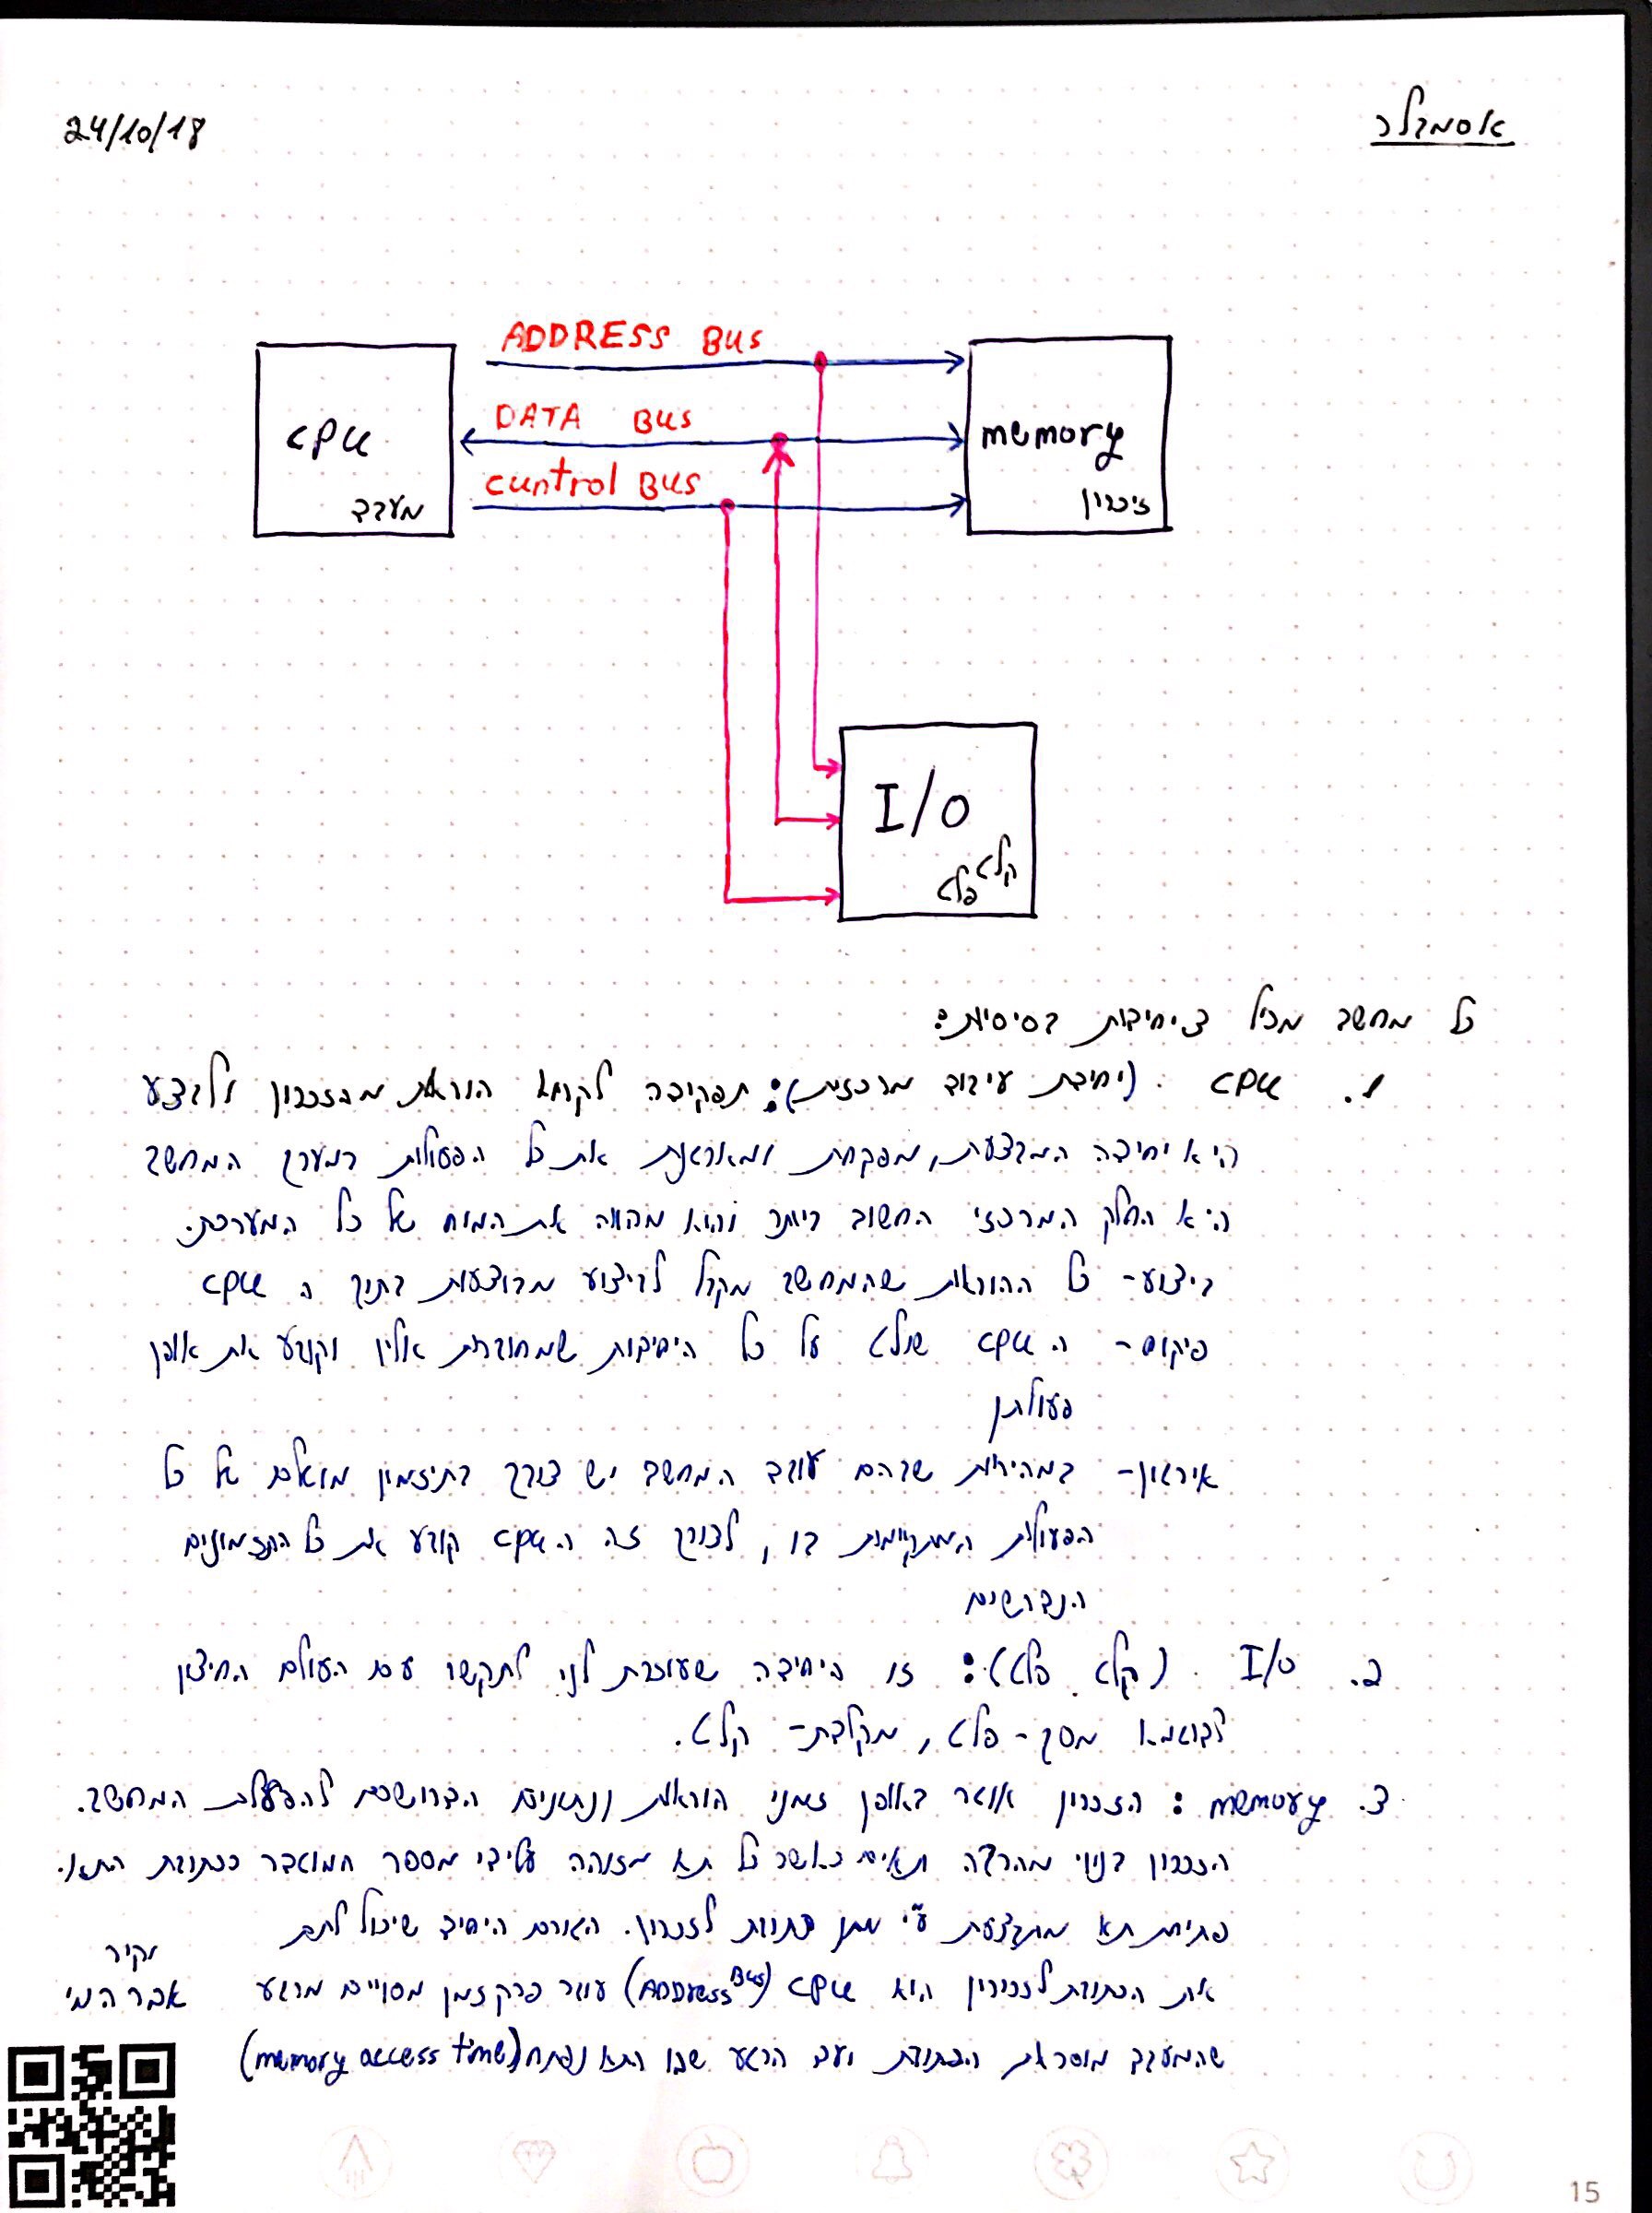 אסמבלר
24/10/18
ADDRESS BUS
DATA BUS
cuntrol BUS
cpu
מעבד
memory
זיכרון
I/O
קלט
פלט
כל מחשב מכיל 3 יחידות בסיסיות:
1. cpu (יחידת עיבוד מרכזית): תפקידה לקרוא הוראות מהזכרון ולבצע
היא יחידה המבצעת, מפקחת ומארגנת את כל הפעולות במערך המחשב
היא החלק המרכזי החשוב ביותר והוא מהווה את המוח של כל המערכת.
ביצוע- כל ההוראות שהמחשב מקבל לביצוע מבוצעות בתוך ה cpu
פיקוח- ה cpu שולט על כל היחידות שמחוברות אליו וקובע את אופן
פעולתן
אירגון- במהירות שבהם עובד המחשב יש צורך בתיזמון מושלם של כל
הפעולות המתקיימות בו, לצורך זה ה cpu קובע את כל התזמונים
הנדרשים
2. I/O (קלט פלט): זו היחידה שעוזרת לנו לתקשר עם העולם החיצון
לדוגמא מסך- פלט, מקלדת- קלט.
3. memory: הזכרון אוגר באופן זמני הוראות ונתונים הדרושים להפעלת המחשב.
הזכרון בנוי מהרבה תאים כאשר כל תא מזוהה על ידי מספר המוגדר ככתובת התא.
פתיחת תא מתבצעת ע"י מתן כתובת לזכרון. הגורם היחיד שיכול לתת
את הכתובת לזיכרון הוא cpu (ADDress Bus) עובר פרק זמן מסויים מרגע
שהמעבד מוסר את הכתובת ועד הרגע שבו התא נפתח (memory access time)
יקיר
אברהמי
15